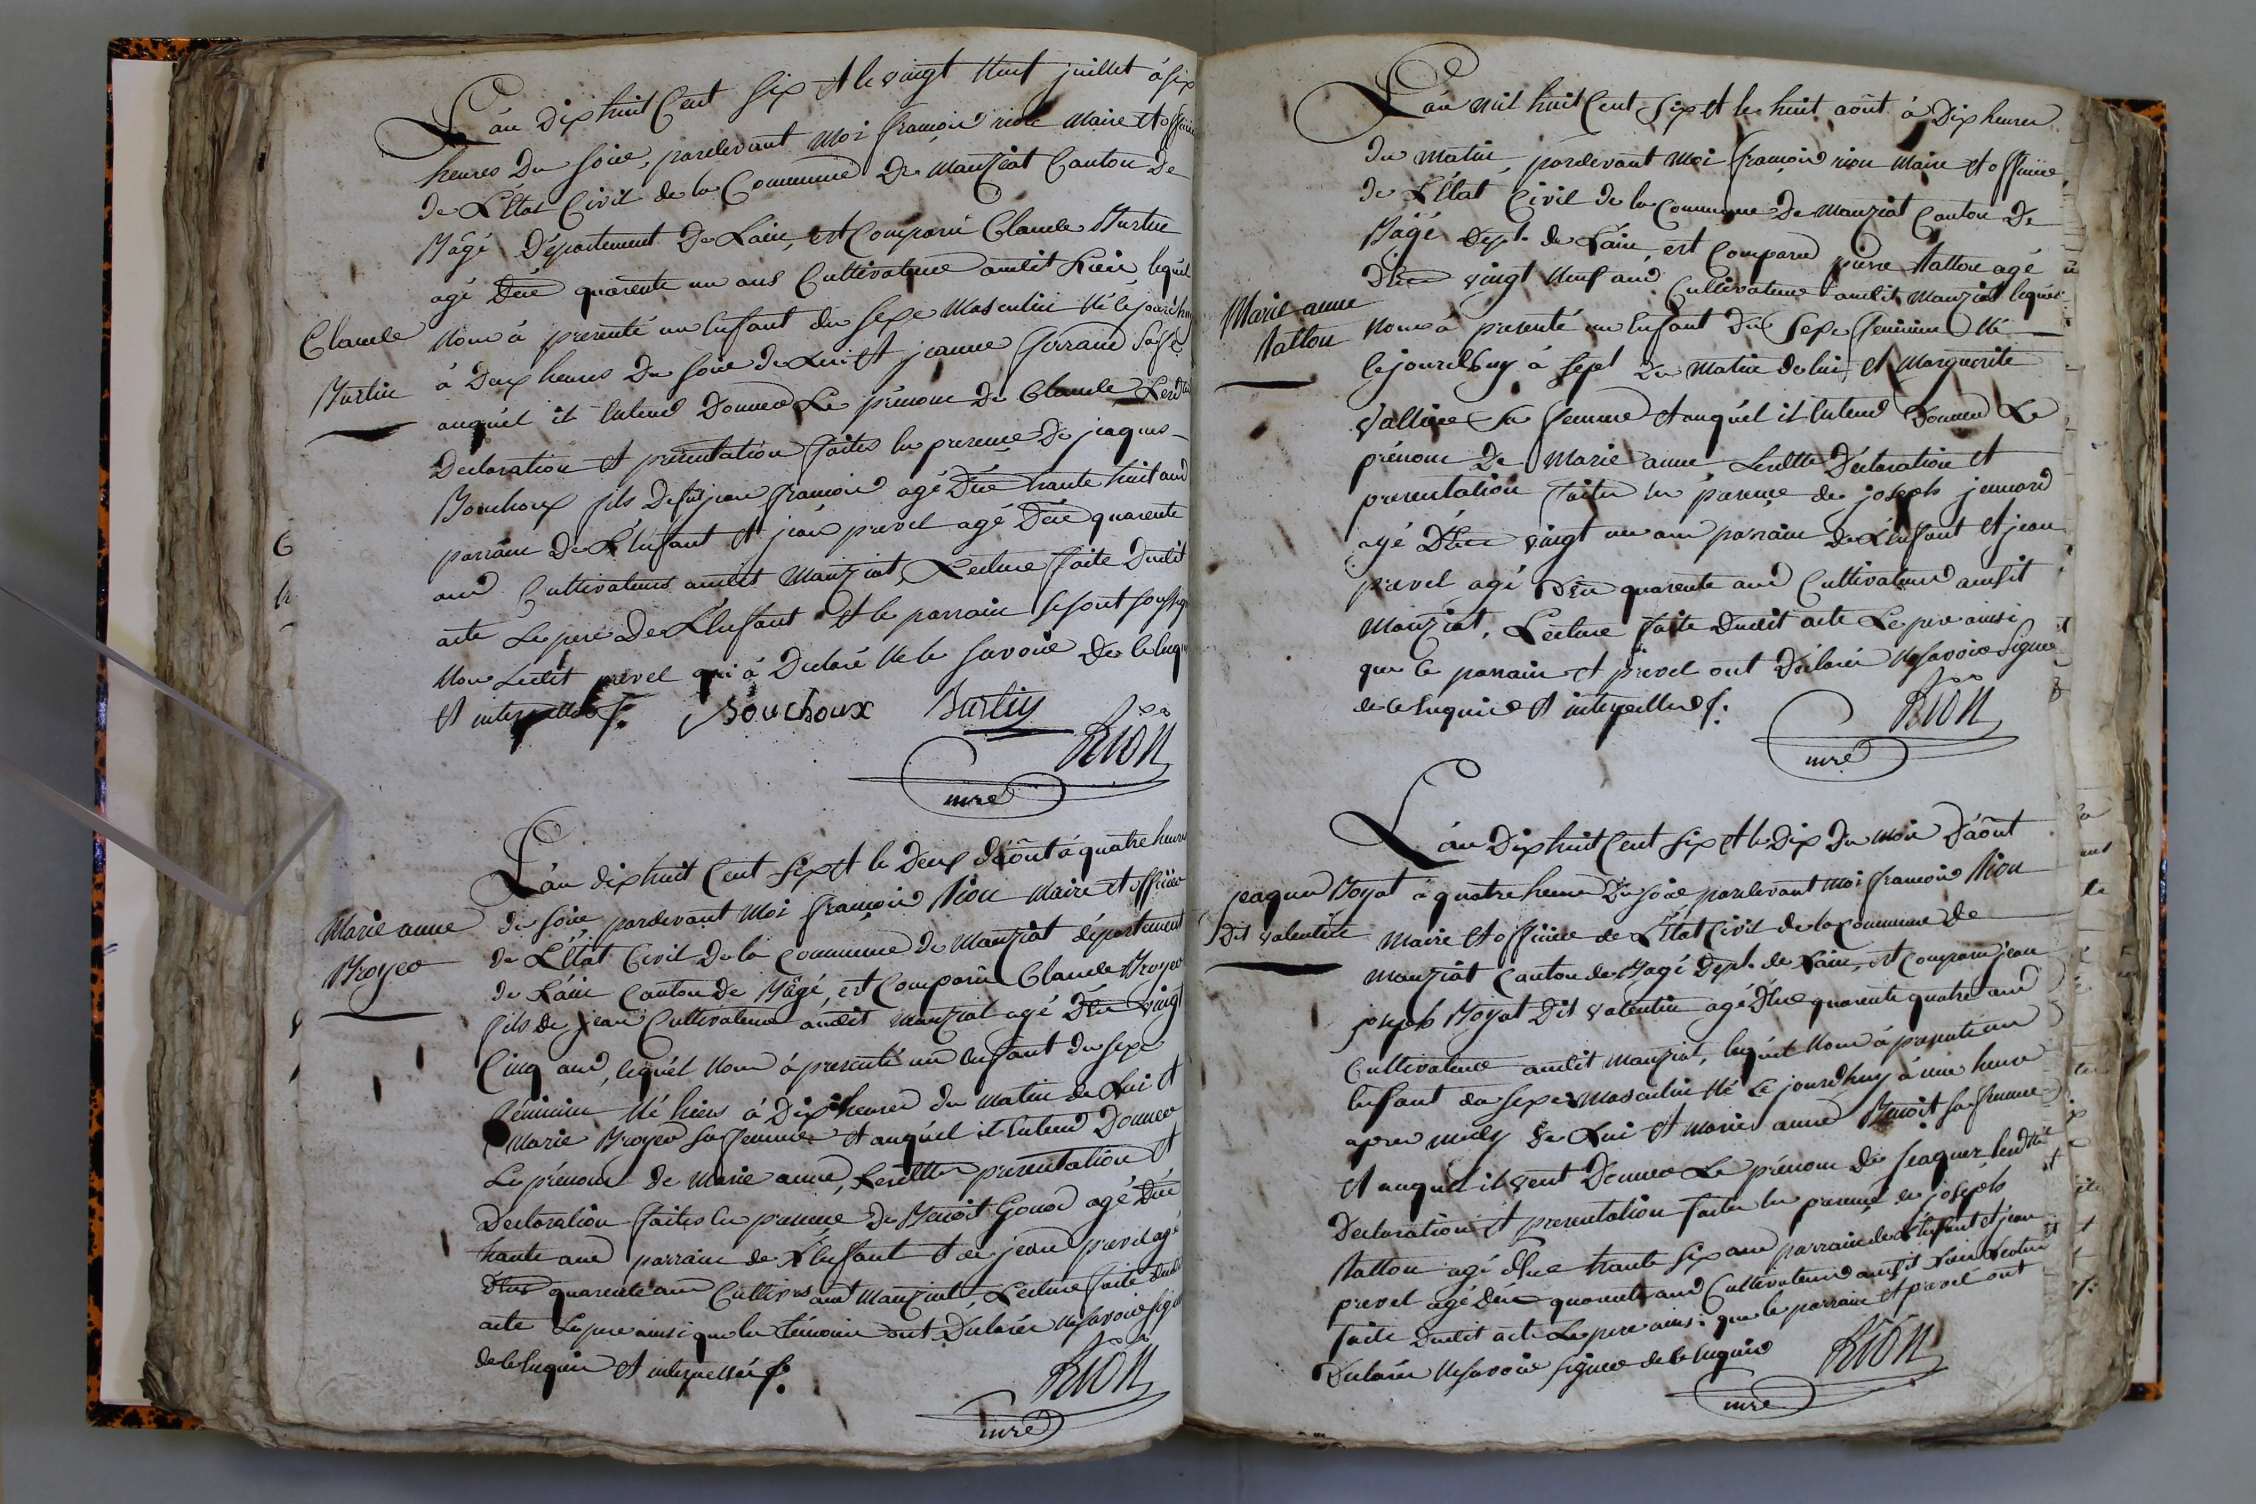 L'an dix huit Cent Six et le vingt huit juillet à six
heures du soir, pardevant moi françois rion Maire et officier
de L'Etat Civil de la Commune de Manziat Canton de
Bâgé Département de L'ain, est Comparû Claude Burtin
agé D'éé quarente un ans Cultivateur audit Lieu, lequel
Claude
Burtin
Nous à presenté un Enfant du sexe Masculin Né Cejourd'huy
à Deux heures du soir de Lui et jeanne ferrand sa fe
auquel il Entend Donner Le prénom De Claude, Lesdtes
Declaration et présentation faites En presence de jaques
Bouchoux fils de fû jean françois agé D'éé trante huit ans
parrain de L'Enfant et jean prevel agé D'éé quarente
ans Cultivateurs audit Manziat, Lecture faite Dudit
acte Le pere de L'Enfant et le parrain se sont soussig
Non Ledit prevel qui à Declaré Ne le savoir De ce Enqu
et interpellés ./.
Bouchoux Burtin
Rion
mre
L'an dix huit Cent Six et le Deux d'aôut à quatre heures
Marie anne
Broyer
du soir pardevant Moi françois Rion Maire et officier
de L'Etat Civil de la Commune de Manziat département
de L'ain Canton de Bâgé, est Comparû Claude Broyer
fils de jean Cultivateur audit Manziat agé D'éé vingt
Cinq ans, lequel Nous à presenté un Enfant du sexe
féminin Né hiers à Dix heures du matin de Lui et
Marie Broyer sa femme et auquel il Entend Donner
Le prénom de Marie anne, Lesdttes presentation et
Declaration faites En presence de Benoit Gonod agé D'éé
trante ans parrain de L'Enfant et de jean prevel agé
D'éé quarente ans Cultivrs aud Manziat Lecture faite dudit
acte Le pere ainsi que les témoins ont Déclarés Ne savoir sign
de ce Enquis et interpellés ./.
Rion
mre
L'an mil huit Cent Six et le huit aôut à Dix heures
du Matin, pardevant Moi françois rion Maire et officier
de L'Etat Civil de la Commune de Manziat Canton de
Bâgé Dept. de L'ain, est Comparû pierre Rattou agé
D'éé vingt Neuf ans Cultivateur audit Manziat lequel
Marie anne
Rattou
Nous à presenté un Enfant du Sexe feminin Né
Cejourdhuy à sept du Matin de lui et Marguerite
Vallier Sa femme et auquel il Entend Donner Le
prénom De Marie anne Lesdttes Déclaration et
presentation faites En presence de joseph jennard
agé D'éé vingt un ans parrain de L'Enfant et jean
prevel agé D'éé quarente ans Cultivateurs audit
Manziat, Lecture faite Dudit acte Le pere ainsi
que le parrain et prevel ont Déclarés Ne savoir Signer
de ce Enquis et interpellés ./.
Rion
mre
L'an Dix huit Cent Six et le Dix du Mois D'aôut
jeaques Boyat
Dit valentin
à quatre heures Du soir pardevant Moi françois Rion
Maire et officier de L'Etat Civil de la Commune de
Manziat Canton de Bagé Dept. de L'ain, est Comparu jean
joseph Boyat Dit valentin agé D'éé quarente quatre ans
Cultivateur audit Manziat, lequel Nous à presenté un
Enfant du sexe Masculin Né Cejourdhuy à une heure
apres midy de Lui et Marie anne Benoit sa femme
et auquel il veut Donner Le prénom de jeaques Lesdttes
Declaration et presentation faites En presence de joseph
Rattou agé D'éé trante six ans parrain de L'Enfant et jean
prevel agé D'éé quarente ans Cultivateurs audit Lieu Lecture
faite Dudit acte Le pere ainsi que le parrain et prevel ont
Declarés Ne savoir signer de ce Enquis
Rion
mre